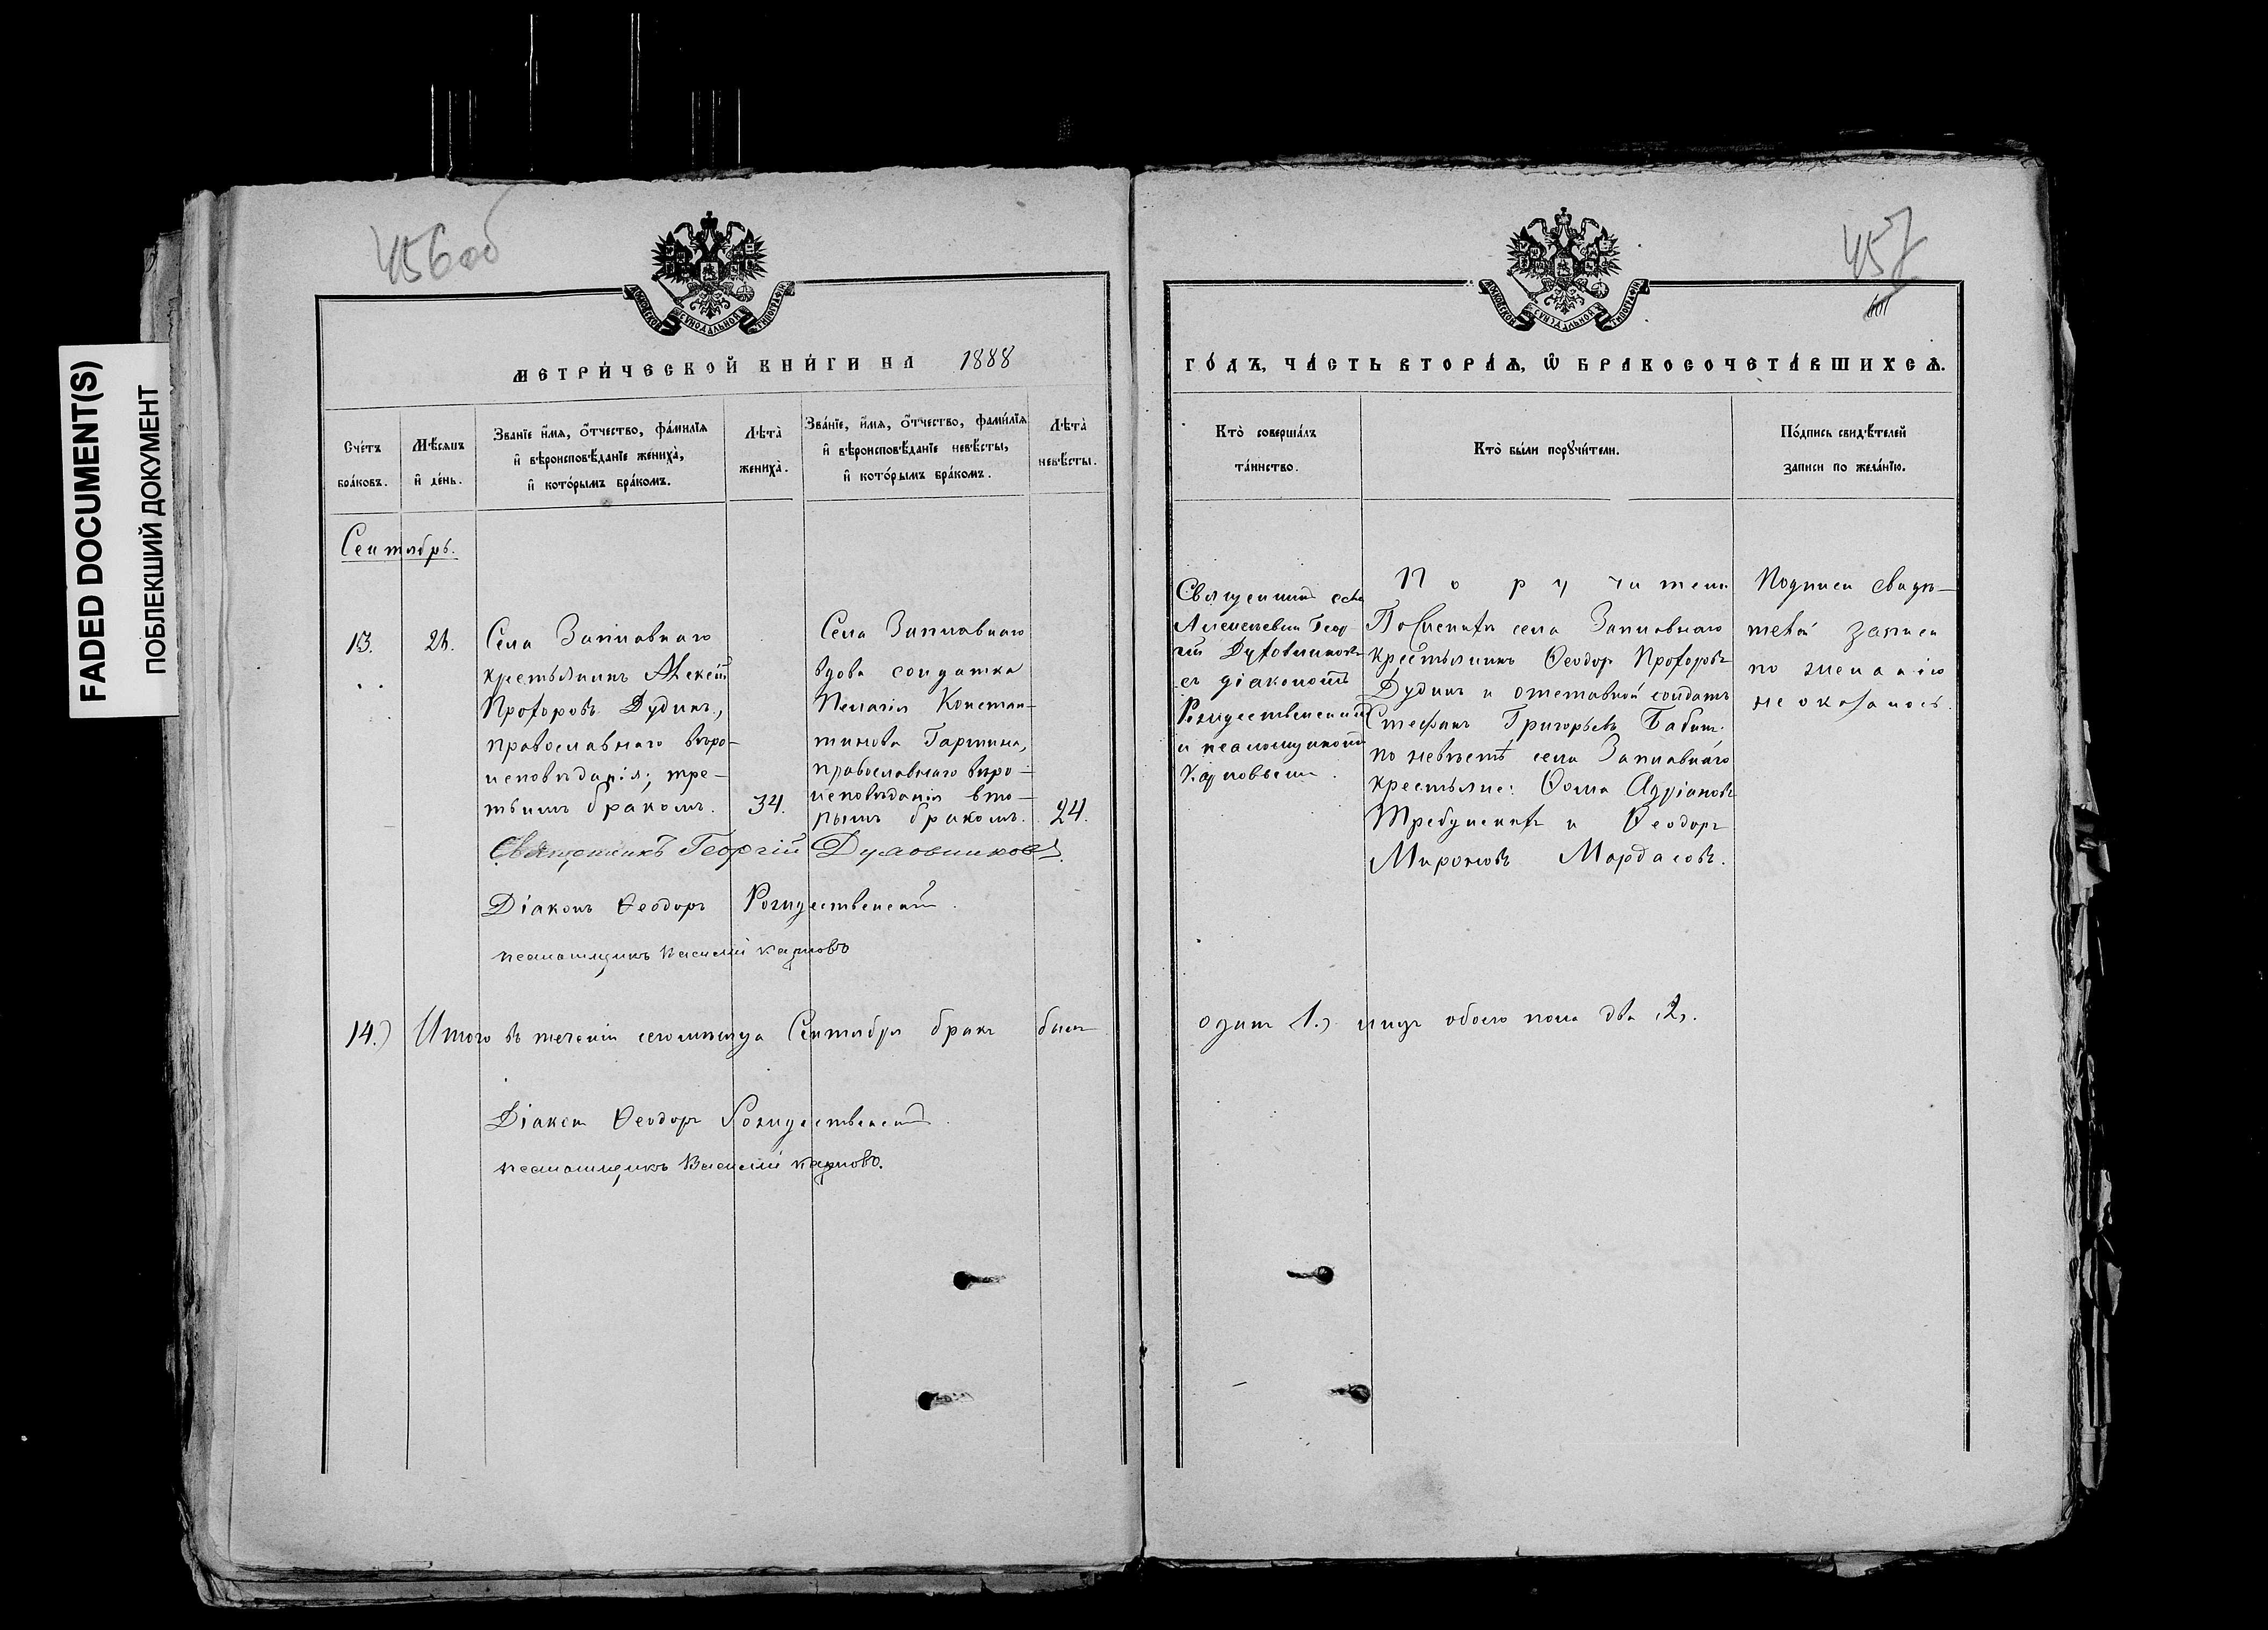 FADED DOCUMENT(S)
ПОБЛЕКШИЙ ДОКУМЕНТ
456об
МОСКОВСКОЙ СѴНОДАЛЬНОЙ ТИПОГРАФІИ
МЕТРИ́ЧЕСКОЙ КНИ́ГИ НА 1888
Сче́тъ
бра́ковъ.
Мѣ́сяцъ
и҆ де́нь.
Зва́нїе и҆́мя, о҆́тчество, фами́лїя
и҆ вѣроисповѣ́данїе жениха̀,
и҆ кото́рымъ бра́комъ.
Лѣ̀та
жениха̀.
Зва́нїе, и҆́мя, о҆́тчество, фами́лїя
и҆ вѣроисповѣ́данїе невѣ́сты,
и҆ кото́рымъ бра́комъ.
Лѣта̀
невѣ́сты.
Сентябрь.
13.
21.
Села Заплавнаго
крестьянинъ Алексѣй
Прохоровъ Дудинъ,
православнаго вѣро-
исповѣданія; тре-
тьимъ бракомъ.
34.
Села Заплавнаго
вдова солдатка
Пелагія Констан-
тинова Гаршина,
православнаго вѣро-
исповѣданія вто-
рымъ бракомъ.
24.
Священникъ Георгій Духовниковъ.
Діаконъ Ѳеодоръ Рождественскій.
псаломщикъ Василій Карповъ
14.) Итого въ теченіи сего мѣсяца Сентября бракъ былъ
Діаконъ Ѳеодоръ Рождественскій.
псаломщикъ Василій Карповъ.
457
МОСКОВСКОЙ СѴНОДАЛЬНОЙ ТИПОГРАФІИ
ГО́ДЪ, ЧА́СТЬ ВТОРА́Ѧ, Ѡ҆ БРАКОСОЧЕТА́ВШИХСѦ.
Кто̀ соверша́лъ
та́инство.
Кто̀ бы́ли порꙋчи́тели.
По́дпись свидѣ́телей
записи по жела́нїю.
Священникъ
Алексѣевичъ Геор-
гій Духовниковъ
съ діакономъ
Рождественскимъ
и псаломщикомъ
Карповымъ.
Поручители
По женихѣ села Заплавнаго
крестьянинъ Ѳеодоръ Прохоровъ
Дудинъ и отставной солдатъ
Стефанъ Григорьевъ Бабин.
по невѣстѣ села Заплавнаго
крестьяне: Ѳома Адріановъ
и Ѳеодоръ
Мироновъ Мордасовъ.
Подписи свидѣ-
телей записи
по желанію
не оказалось.
одинъ 1.) лицъ обоего пола два 2).